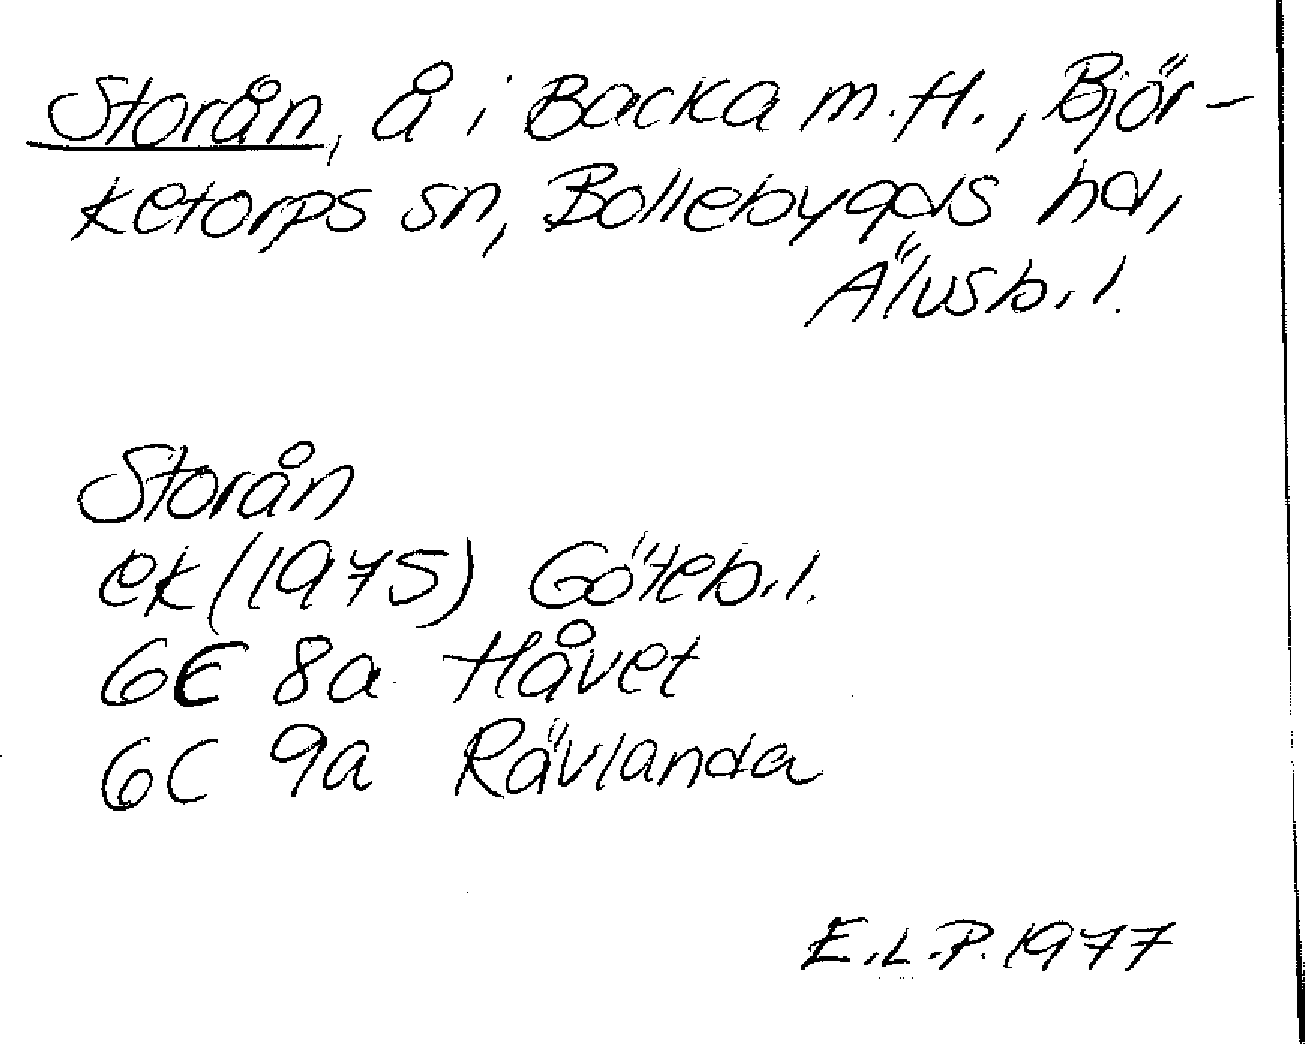 Storån, å i Backa m.fl., Björ-
ketorps sn, Bollebygds hd,
Älvsb. l.
Storån
ek (1975) Göteb. l.
6C 8a Håvet
6C 9a Rävlanda
E.L.P. 1977